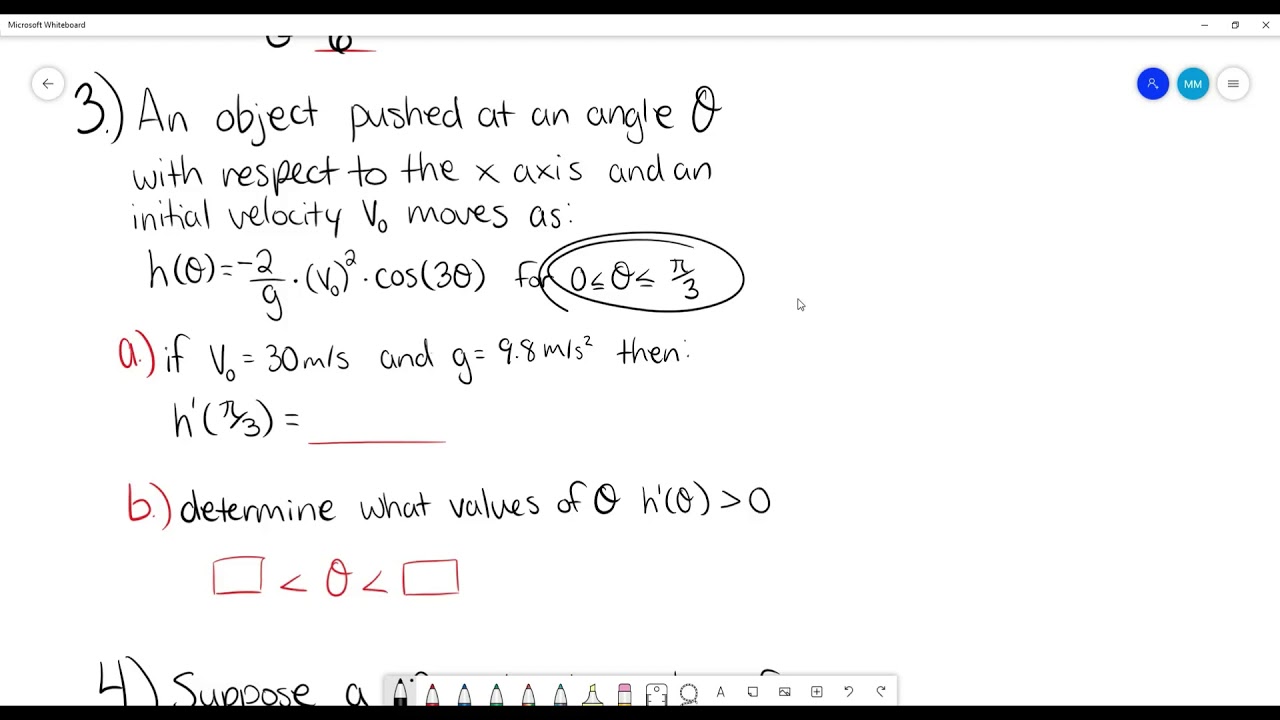 Microsoft Whiteboard
MM
3.) An object pushed at an angle θ
with respect to the x axis and an
initial velocity V₀ moves as:
h(θ) = -2/g · (V₀)² · cos(3θ) for 0 ≤ θ ≤ π/3
a.) if V₀ = 30m/s and g = 9.8m/s² then:
h'(π/3) =
b.) determine what values of θ h'(θ) > 0
□ < θ < □
4.) Suppose a
A